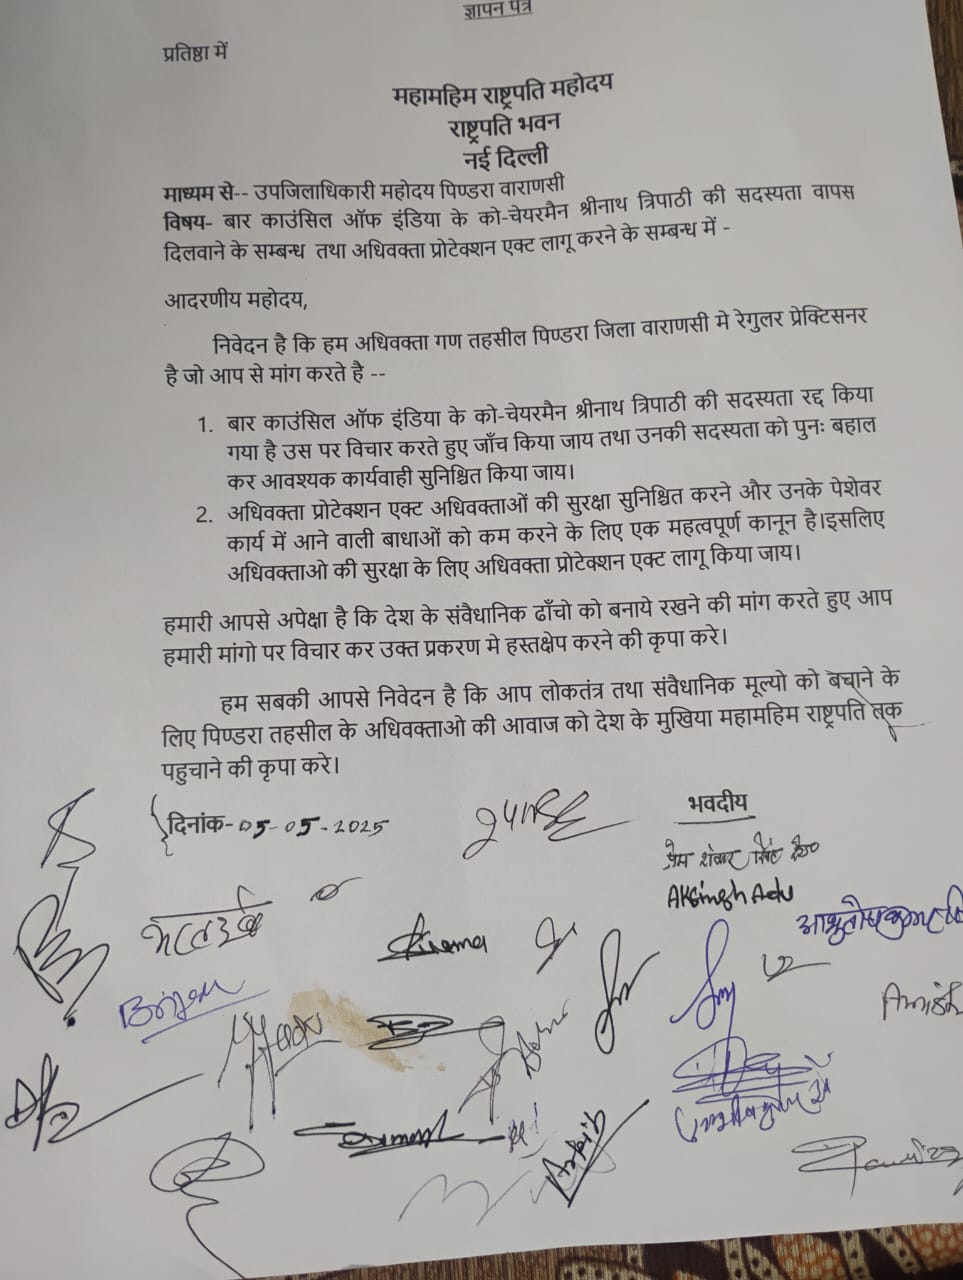 ज्ञापन पत्र
प्रतिष्ठा में
महामहिम राष्ट्रपति महोदय
राष्ट्रपति भवन
नई दिल्ली
माध्यम से-- उपजिलाधिकारी महोदय पिण्डरा वाराणसी
विषय- बार काउंसिल ऑफ इंडिया के को-चेयरमैन श्रीनाथ त्रिपाठी की सदस्यता वापस
दिलवाने के सम्बन्ध तथा अधिवक्ता प्रोटेक्शन एक्ट लागू करने के सम्बन्ध में -
आदरणीय महोदय,
निवेदन है कि हम अधिवक्ता गण तहसील पिण्डरा जिला वाराणसी मे रेगुलर प्रेक्टिसनर
है जो आप से मांग करते है --
1. बार काउंसिल ऑफ इंडिया के को-चेयरमैन श्रीनाथ त्रिपाठी की सदस्यता रद्द किया
गया है उस पर विचार करते हुए जाँच किया जाय तथा उनकी सदस्यता को पुनः बहाल
कर आवश्यक कार्यवाही सुनिश्चित किया जाय।
2. अधिवक्ता प्रोटेक्शन एक्ट अधिवक्ताओं की सुरक्षा सुनिश्चित करने और उनके पेशेवर
कार्य में आने वाली बाधाओं को कम करने के लिए एक महत्वपूर्ण कानून है।इसलिए
अधिवक्ताओ की सुरक्षा के लिए अधिवक्ता प्रोटेक्शन एक्ट लागू किया जाय।
हमारी आपसे अपेक्षा है कि देश के संवैधानिक ढाँचो को बनाये रखने की मांग करते हुए आप
हमारी मांगो पर विचार कर उक्त प्रकरण मे हस्तक्षेप करने की कृपा करे।
हम सबकी आपसे निवेदन है कि आप लोकतंत्र तथा संवैधानिक मूल्यो को बचाने के
लिए पिण्डरा तहसील के अधिवक्ताओ की आवाज को देश के मुखिया महामहिम राष्ट्रपति तक
पहुचाने की कृपा करे।
दिनांक- 05-05-2025
भवदीय
प्रेम शंकर सिंह
AKSingh Adv